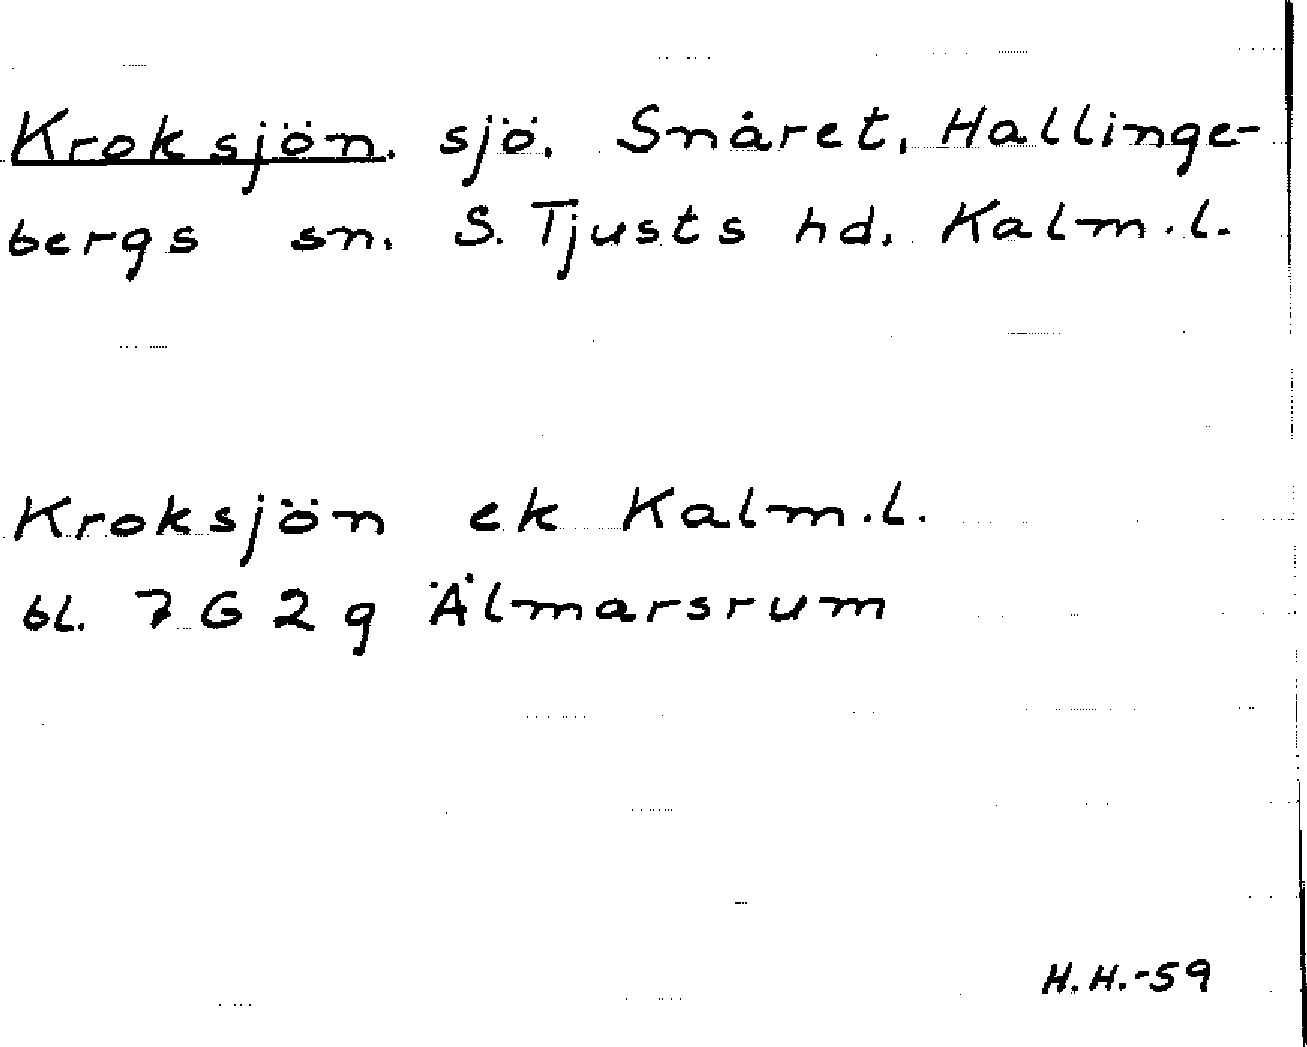 Kroksjön, sjö, Snåret, Hallinge-
bergs sn, S. Tjusts hd, Kalm.l.
Kroksjön ek Kalm.l.
bl. 7 G 2 g Älmarsrum
H.H.-59